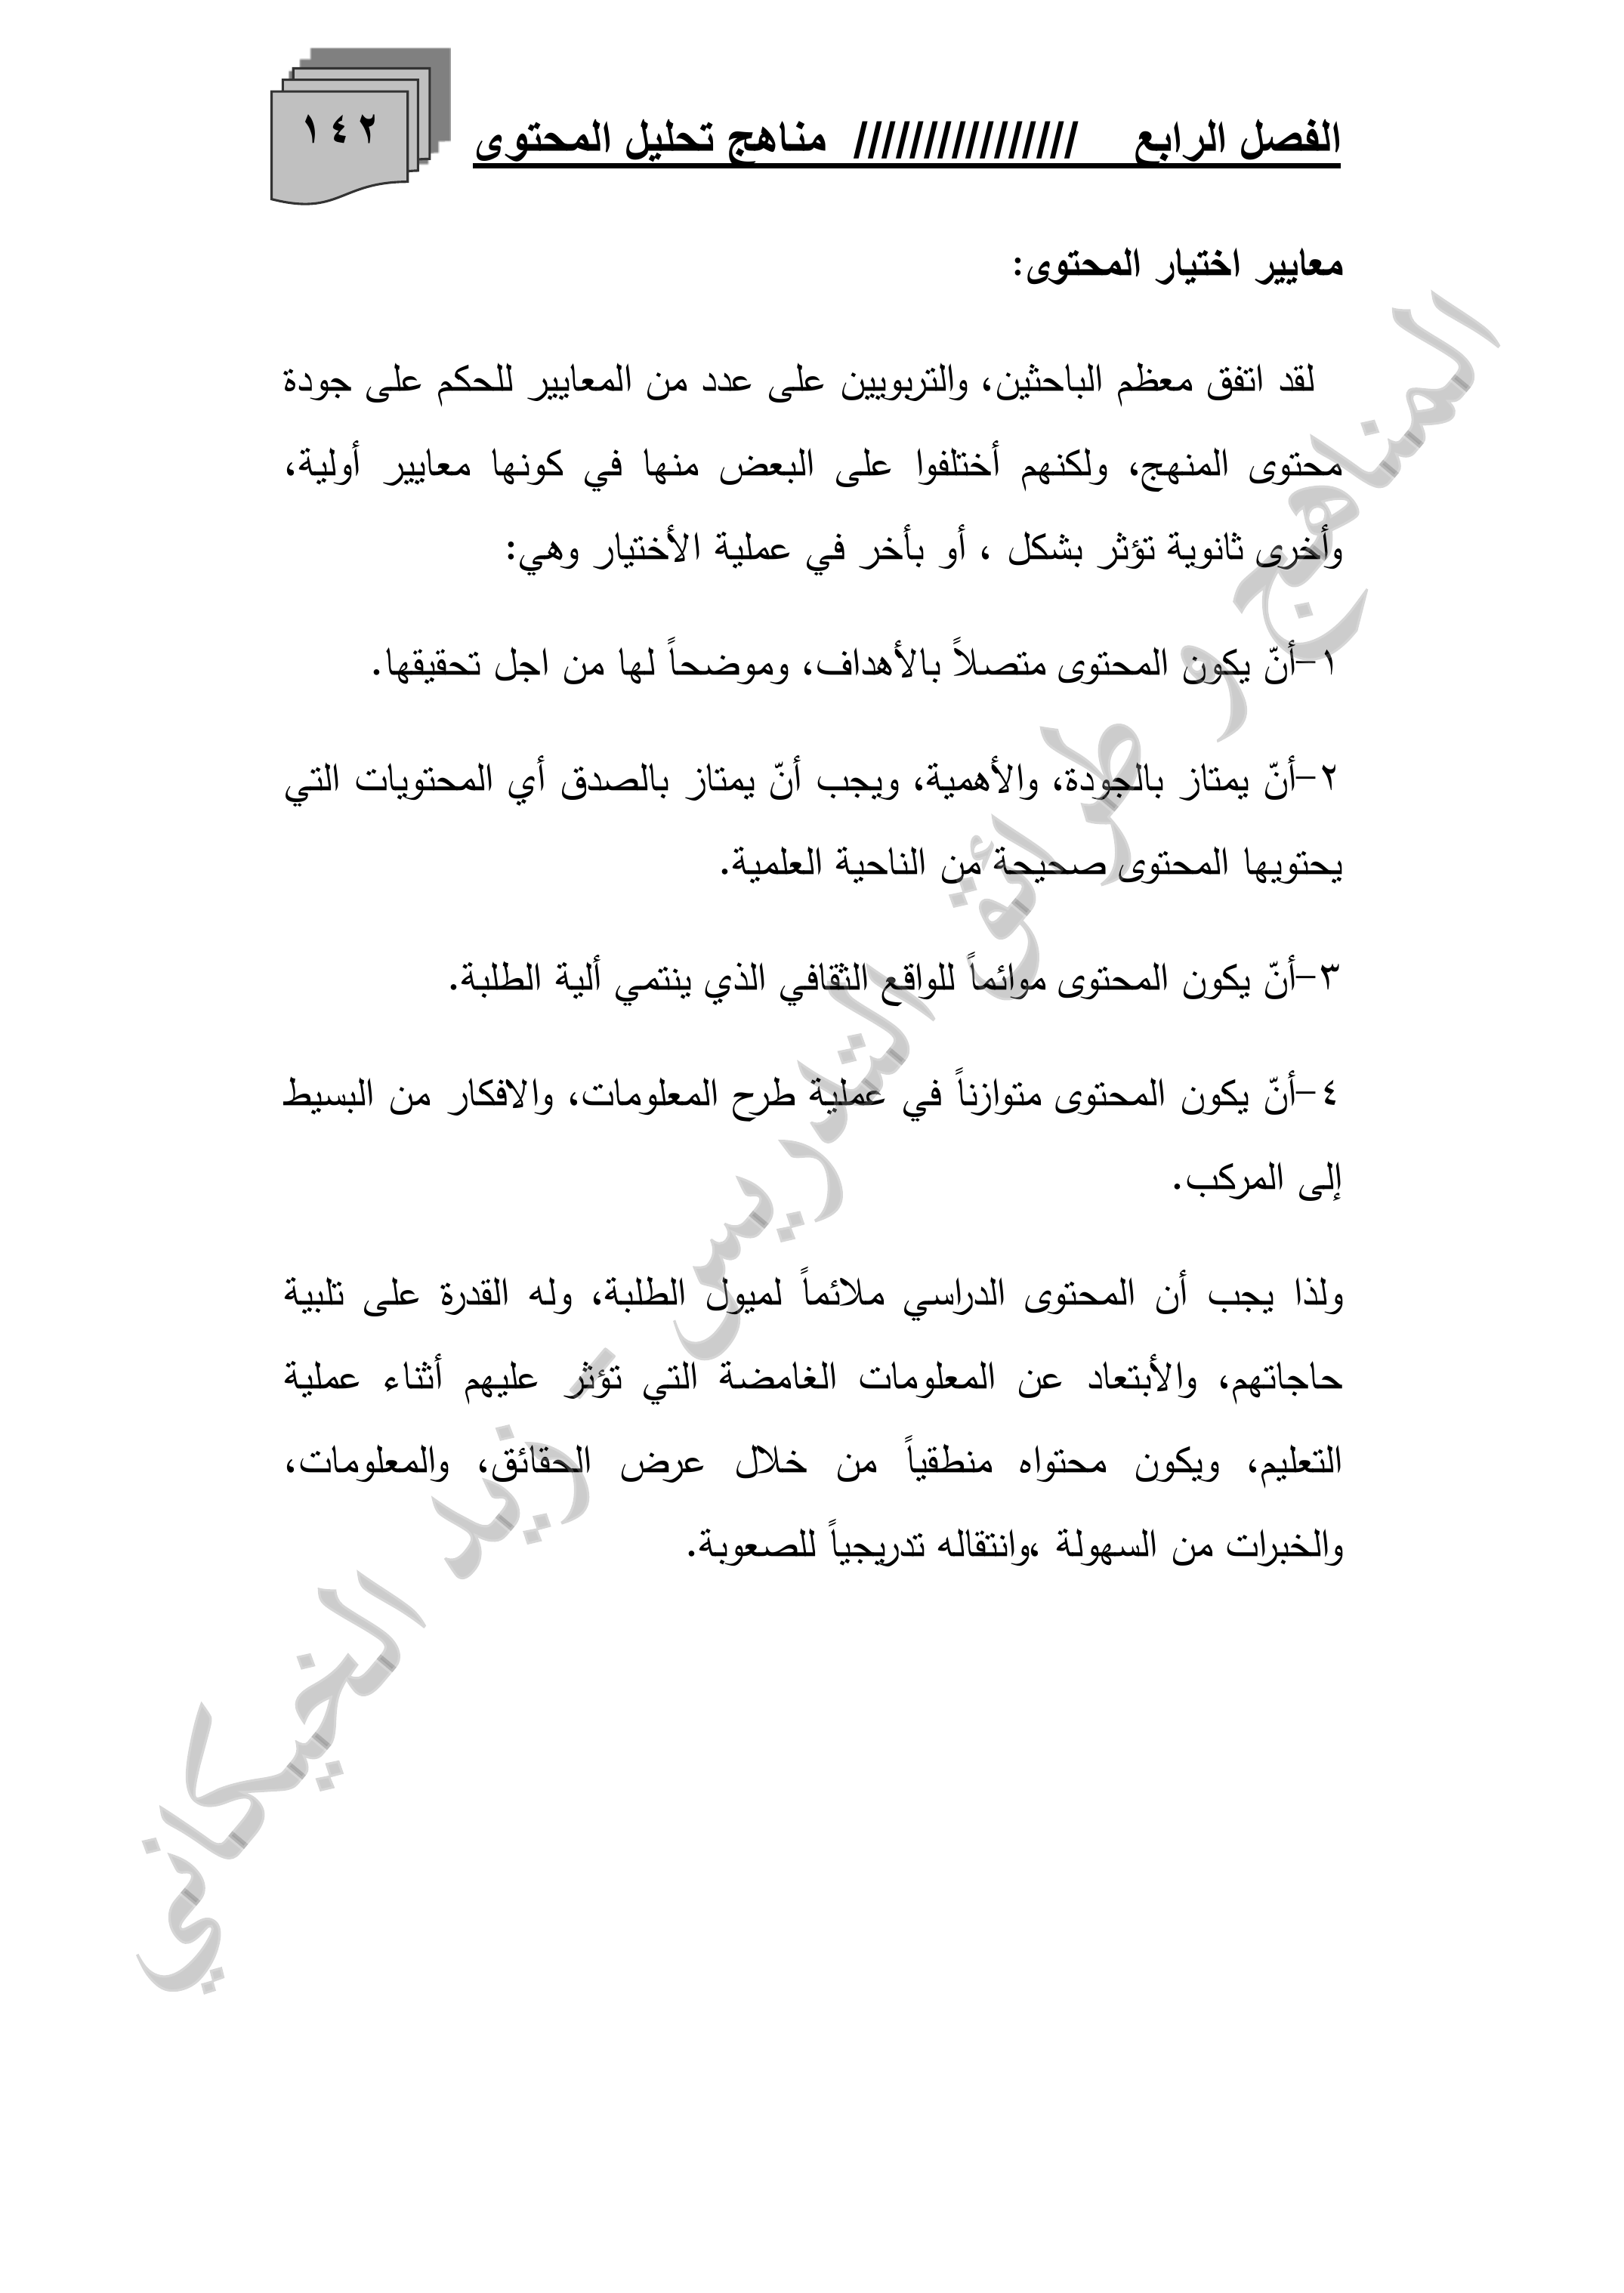 الفصل الرابع //////////////// مناهج تحليل المحتوى
١٤٢
معايير اختيار المحتوى:
لقد اتفق معظم الباحثين، والتربويين على عدد من المعايير للحكم على جودة
محتوى المنهج، ولكنهم أختلفوا على البعض منها في كونها معايير أولية،
وأخرى ثانوية تؤثر بشكل ، أو بأخر في عملية الأختيار وهي:
١-أنّ يكون المحتوى متصلاً بالأهداف، وموضحاً لها من اجل تحقيقها.
٢-أنّ يمتاز بالجودة، والأهمية، ويجب أنّ يمتاز بالصدق أي المحتويات التي
يحتويها المحتوى صحيحة من الناحية العلمية.
٣-أنّ يكون المحتوى موائماً للواقع الثقافي الذي ينتمي ألية الطلبة.
٤-أنّ يكون المحتوى متوازناً في عملية طرح المعلومات، والافكار من البسيط
إلى المركب.
ولذا يجب أن المحتوى الدراسي ملائماً لميول الطلبة، وله القدرة على تلبية
حاجاتهم، والأبتعاد عن المعلومات الغامضة التي تؤثر عليهم أثناء عملية
التعليم، ويكون محتواه منطقياً من خلال عرض الحقائق، والمعلومات،
والخبرات من السهولة ،وانتقاله تدريجياً للصعوبة.
المناهج و طرائق التدريس - زيد الخيكاني